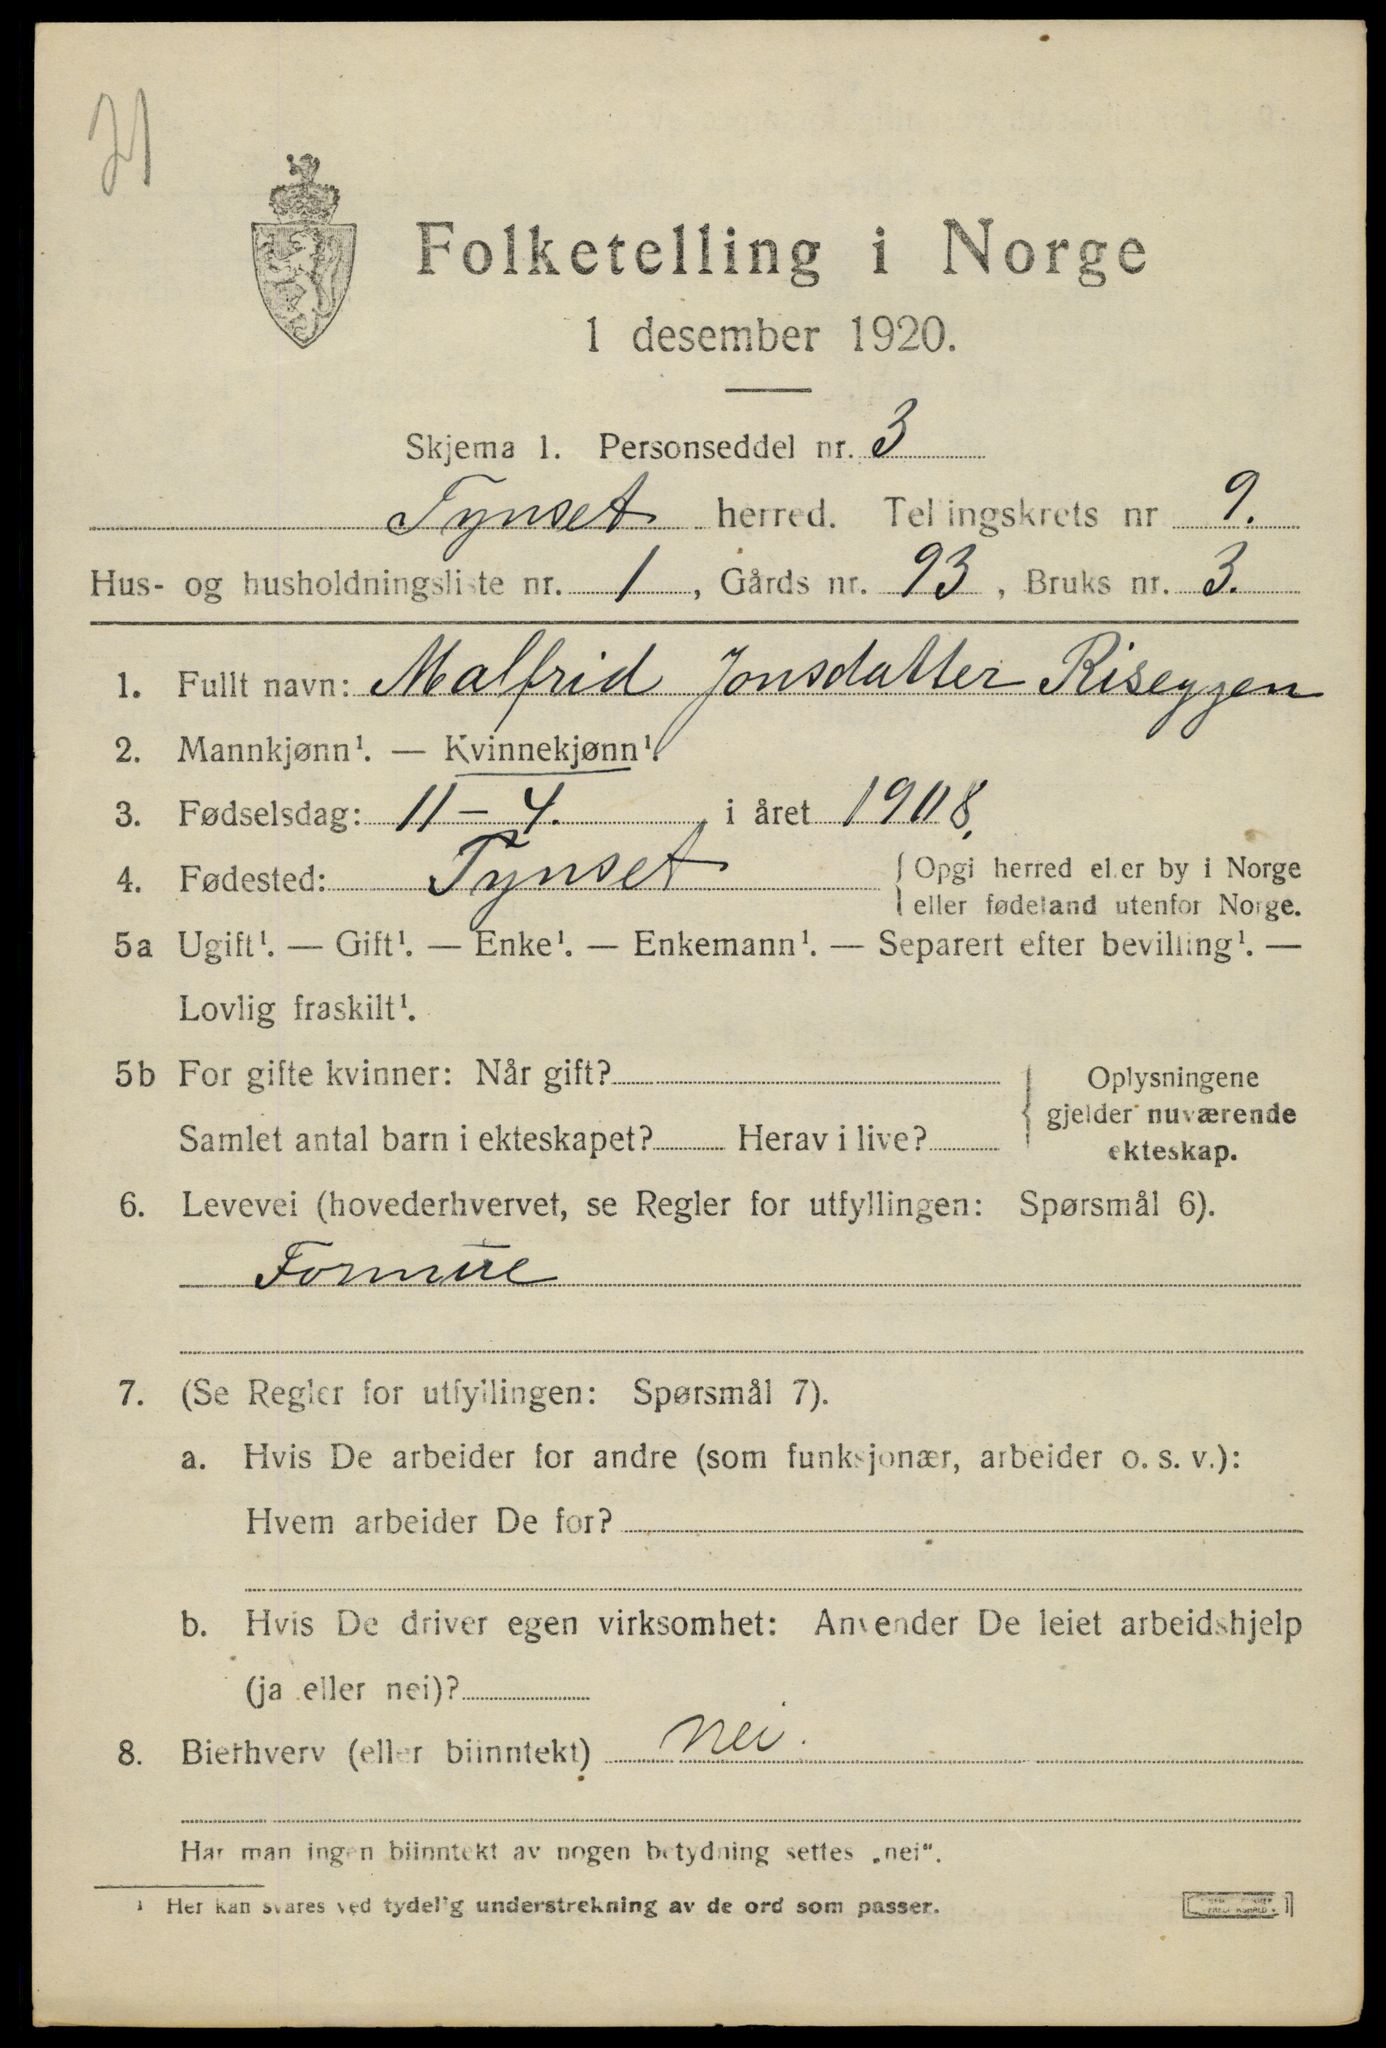 21
Folketelling i Norge
1 desember 1920.
Skjema 1. Personseddel nr. 3
Tynset herred. Tellingskrets nr 9.
Hus- og husholdningsliste nr. 1, Gårds nr. 93, Bruks nr. 3.
1. Fullt navn: Malfrid Jonsdatter Riseggen
2. Mannkjønn¹. — Kvinnekjønn¹.
3. Fødselsdag: 11 – 4. i året 1908.
4. Fødested: Tynset { Opgi herred eller by i Norge
eller fødeland utenfor Norge.
5a Ugift¹. — Gift¹. — Enke¹. — Enkemann¹. — Separert efter bevilling¹. —
Lovlig fraskilt¹.
5b For gifte kvinner: Når gift?
Samlet antal barn i ekteskapet? Herav i live?
Oplysningene
gjelder nuværende
ekteskap.
6. Levevei (hovederhvervet, se Regler for utfyllingen: Spørsmål 6).
Formue
7. (Se Regler for utfyllingen: Spørsmål 7).
a. Hvis De arbeider for andre (som funksjonær, arbeider o. s. v.):
Hvem arbeider De for?
b. Hvis De driver egen virksomhet: Anvender De leiet arbeidshjelp
(ja eller nei)?
8. Bierhverv (eller biinntekt) nei.
Har man ingen biinntekt av nogen betydning settes „nei".
¹ Her kan svares ved tydelig understrekning av de ord som passer.